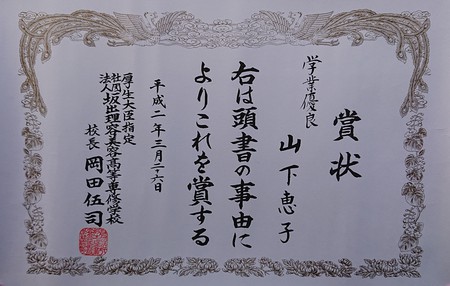 賞状
学業優良
山下恵子
右は頭書の事由に
よりこれを賞する
平成二年三月二六日
厚生大臣指定
社団法人坂出理容美容高等専修学校
校長 岡田伍司